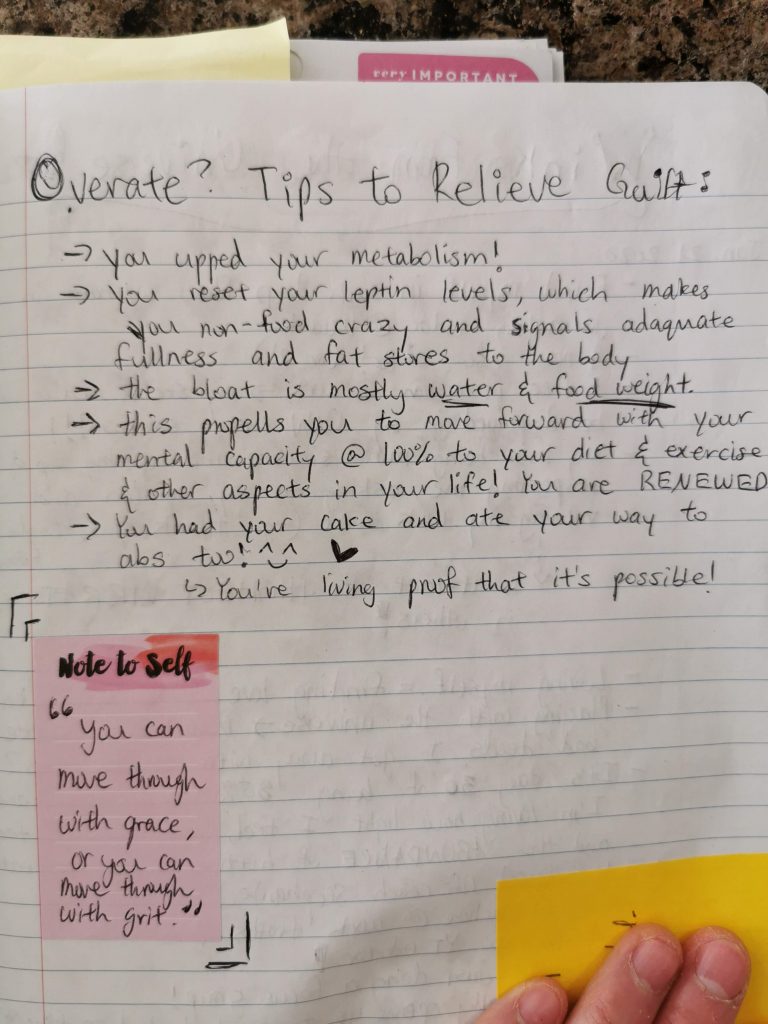 very IMPORTANT
Overate? Tips to Relieve Guilt:
→ you upped your metabolism!
→ you reset your leptin levels, which makes
you non-food crazy and signals adaquate
fullness and fat stores to the body
→ the bloat is mostly water & food weight.
→ this propells you to move forward with your
mental capacity @ 100% to your diet & exercise
& other aspects in your life! You are RENEWED
→ You had your cake and ate your way to
abs too! ^‿^ ♥
↳ You're living proof that it's possible!
Note to Self
“You can
move through
with grace,
or you can
move through
with grit.”